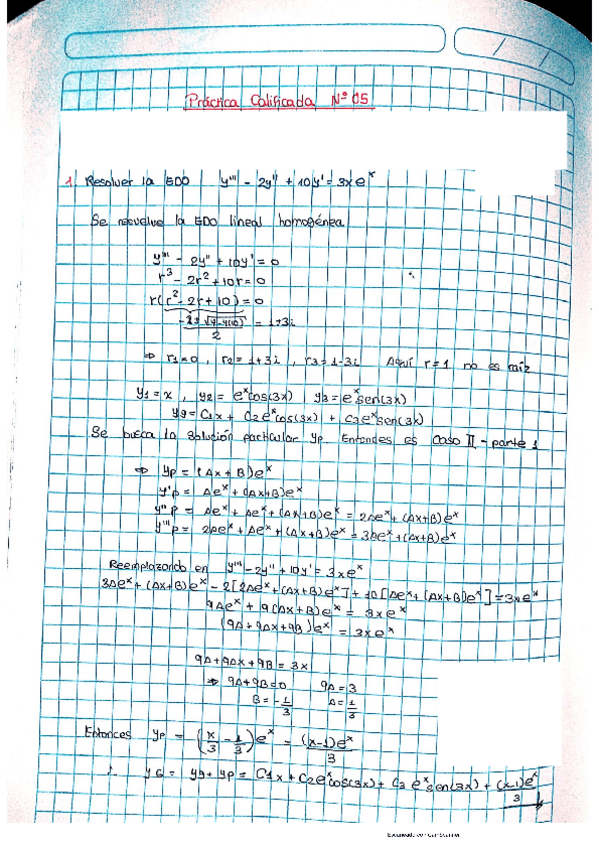 Práctica Calificada N° 05
1. Resolver la EDO y''' - 2y'' + 10y' = 3xe^x
Se resuelve la EDO lineal homogénea
y''' - 2y'' + 10y' = 0
r³ - 2r² + 10r = 0
r(r² - 2r + 10) = 0
= 1+3i
2
⇒ r1=0, r2=1+3i, r3=1-3i Aquí r=1 no es raíz
y1=x, y2= e^x cos(3x) y3=e^x sen(3x)
yg = C1x + C2e^x cos(3x) + C3e^x sen(3x)
Se busca la solución particular yp. Entonces es Caso II - parte 1
⇒ yp = (Ax + B)e^x
y'p = Ae^x + (Ax+B)e^x
y''p = Ae^x + Ae^x + (Ax+B)e^x = 2Ae^x + (Ax+B)e^x
y'''p = 2Ae^x + Ae^x + (Ax+B)e^x = 3Ae^x + (Ax+B)e^x
Reemplazando en y''' - 2y'' + 10y' = 3xe^x
3Ae^x + (Ax+B)e^x - 2[2Ae^x + (Ax+B)e^x] + 10[Ae^x + (Ax+B)e^x] = 3xe^x
9Ae^x + 9(Ax+B)e^x = 3xe^x
(9A + 9Ax + 9B)e^x = 3xe^x
9A + 9Ax + 9B = 3x
⇒ 9A + 9B = 0 9A = 3
B = -1/3 A = 1/3
Entonces yp = (x/3 - 1/3)e^x = (x-1)e^x/3
∴ yG = yg + yp = C1x + C2e^x cos(3x) + C3e^x sen(3x) + (x-1)e^x/3